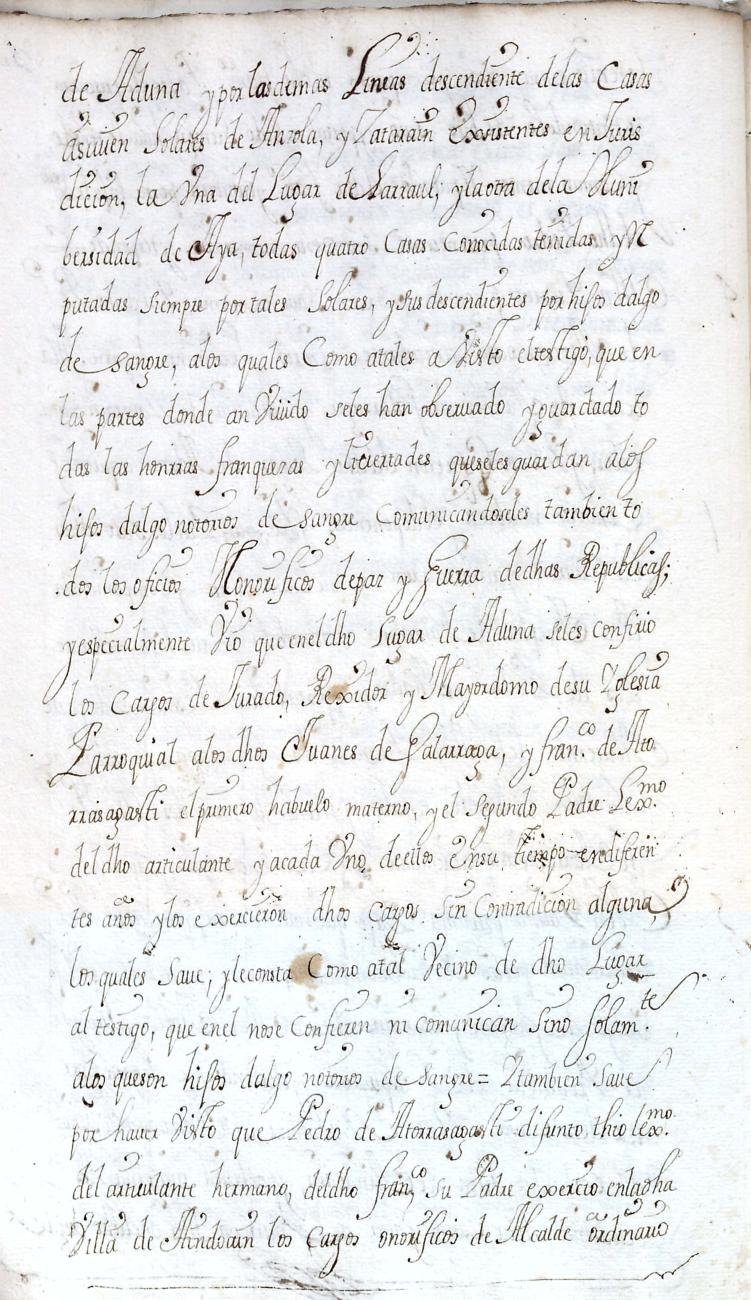 de Aduna y por las demas Lineas descendiente de las Casas
asuven Solares de Anzola, y Zatarain Exsistentes en Juris
dicion, la Vna del Lugar de Larraul, y la otra de la Vuni
bersidad de Aya, todas quatro Casas Conocidas tenidas y R
putadas siempre por tales Solares, y sus descendientes por hisos dalgo
de sangre, alos quales Como atales a Visto el testigo, que en
las partes donde an Viuido seles han observado y guardado to
das las honrras franquezas y livertades que seles guardan alos
hisos dalgo notorios de sangre Comunicandoseles tambien to
dos los oficios Honorificos de paz y Guerra de dhas Republicas;
y especialmente Vio que en el dho Lugar de Aduna seles confirio
los Cargos de Jurado, Rexidor y Mayordomo de su Yglesia
Parroquial alos dhos Juanes de Galarraga, y fran.co de Ato
rrasagasti el primero habuelo materno, y el segundo Padre Lex.mo
del dho articulante y acada Vno de ellos en su tiempo en diferen
tes años y los exercieron dhos Cargos sin Contradicion alguna
los quales save, y le consta Como atal Vecino de dho Lugar
al testigo, que en el nose Confieren ni comunican sino solam.te
alos que son hisos dalgo notorios de sangre = Y tambien save
por haver Visto que Pedro de Atorrasagasti difunto thio lex.mo
del articulante hermano, del dho fran.co su Padre exercio en la dha
Villa de Aindoain los Cargos onorificos de Alcalde ordinario